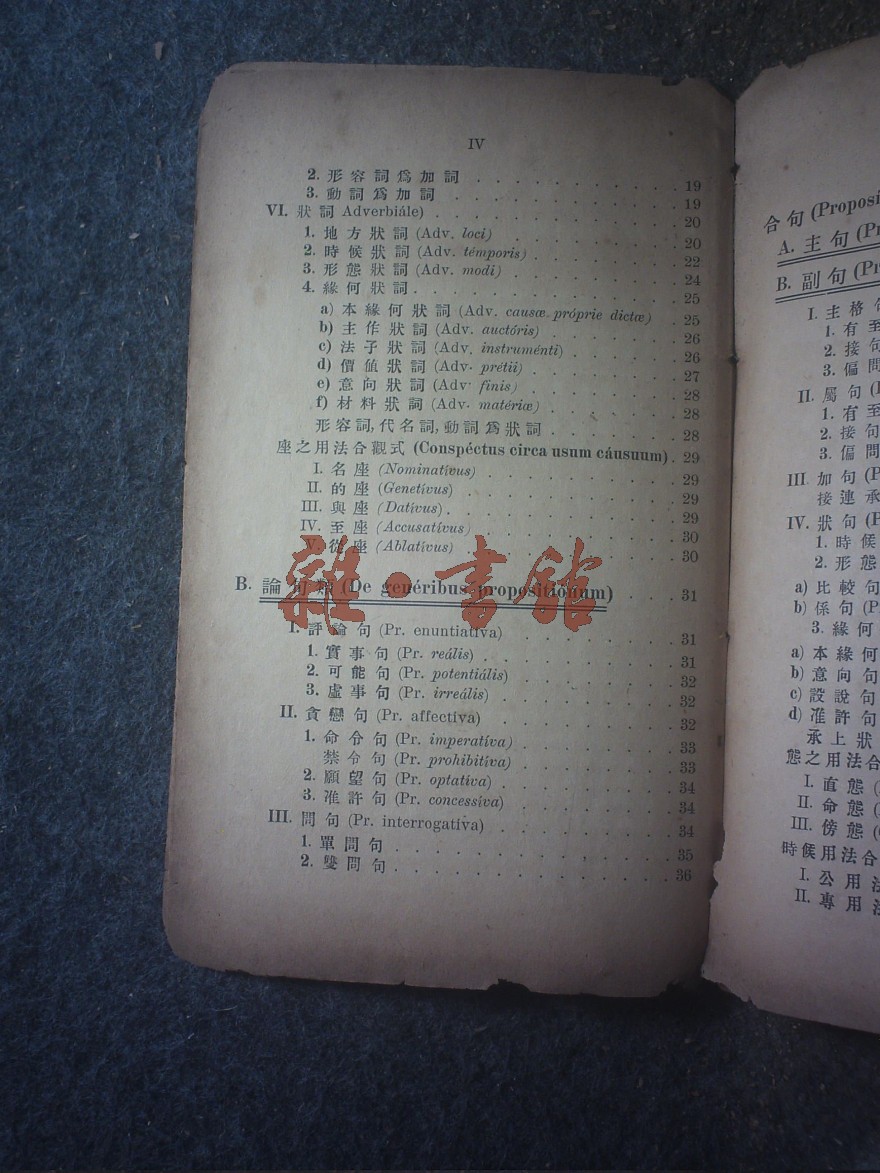 IV
2. 形容詞爲加詞 . . . 19
3. 動詞爲加詞 . . . 19
VI. 狀詞 Adverbiále) . . . 20
1. 地方狀詞 (Adv. loci) . . . 20
2. 時候狀詞 (Adv. témporis) . . . 22
3. 形態狀詞 (Adv. modi) . . . 24
4. 緣何狀詞 . . . 25
a) 本緣何狀詞 (Adv. causæ próprie dictæ) 25
b) 主作狀詞 (Adv. auctóris) . . . 26
c) 法子狀詞 (Adv. instruménti) . . . 26
d) 價値狀詞 (Adv. prétii) . . . 27
e) 意向狀詞 (Adv. finis) . . . 28
f) 材料狀詞 (Adv. matériæ) . . . 28
形容詞,代名詞,動詞爲狀詞 . . . 28
座之用法合觀式 (Conspéctus circa usum cáusuum) . 29
I. 名座 (Nominatívus) . . . 29
II. 的座 (Genetívus) . . . 29
III. 與座 (Datívus) . . . 29
IV. 至座 (Accusatívus) . . . 30
V. 從座 (Ablatívus) . . . 30
B. 論句類 (De genéribus propositiónum) . . . 31
I. 評論句 (Pr. enuntiatíva) . . . 31
1. 實事句 (Pr. reális) . . . 31
2. 可能句 (Pr. potentiális) . . . 32
3. 虛事句 (Pr. irreális) . . . 32
II. 貪戀句 (Pr. affectíva) . . . 32
1. 命令句 (Pr. imperatíva) . . . 33
禁令句 (Pr. prohibitíva) . . . 33
2. 願望句 (Pr. optatíva) . . . 34
3. 准許句 (Pr. concessíva) . . . 34
III. 問句 (Pr. interrogatíva) . . . 34
1. 單問句 . . . 35
2. 雙問句 . . . 36
雜·書館
合句 (Proposi
A. 主句 (Pr
B. 副句 (Pr
I. 主格
1. 有至
2. 接句
3. 偏問
II. 屬句
1. 有至
2. 接句
3. 偏問
III. 加句 (P
接連承
IV. 狀句 (P
1. 時候
2. 形態
a) 比較句
b) 係句 (P
3. 緣何
a) 本緣何
b) 意向句
c) 設說句
d) 准許句
承上狀
態之用法合
I. 直態
II. 命態
III. 傍態
時候用法合
I. 公用法
II. 專用法